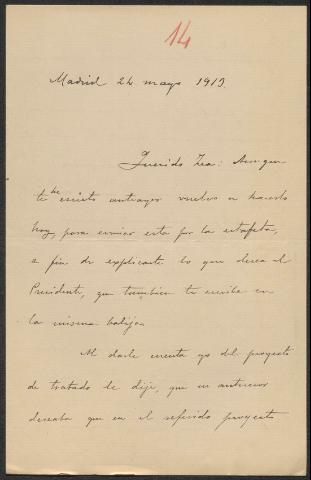 14
Madrid 24 mayo 1913.
Querido Zea: Aunque
te he escrito antayer vuelvo a hacerlo
hoy, para enviar esta por la estafeta,
a fin de explicarte lo que desea el
Presidente, que tambien te escribe en
la misma balija.
Al darle cuenta yo del proyecto
de tratado le dije, que su antecesor
deseaba que en el referido proyecto